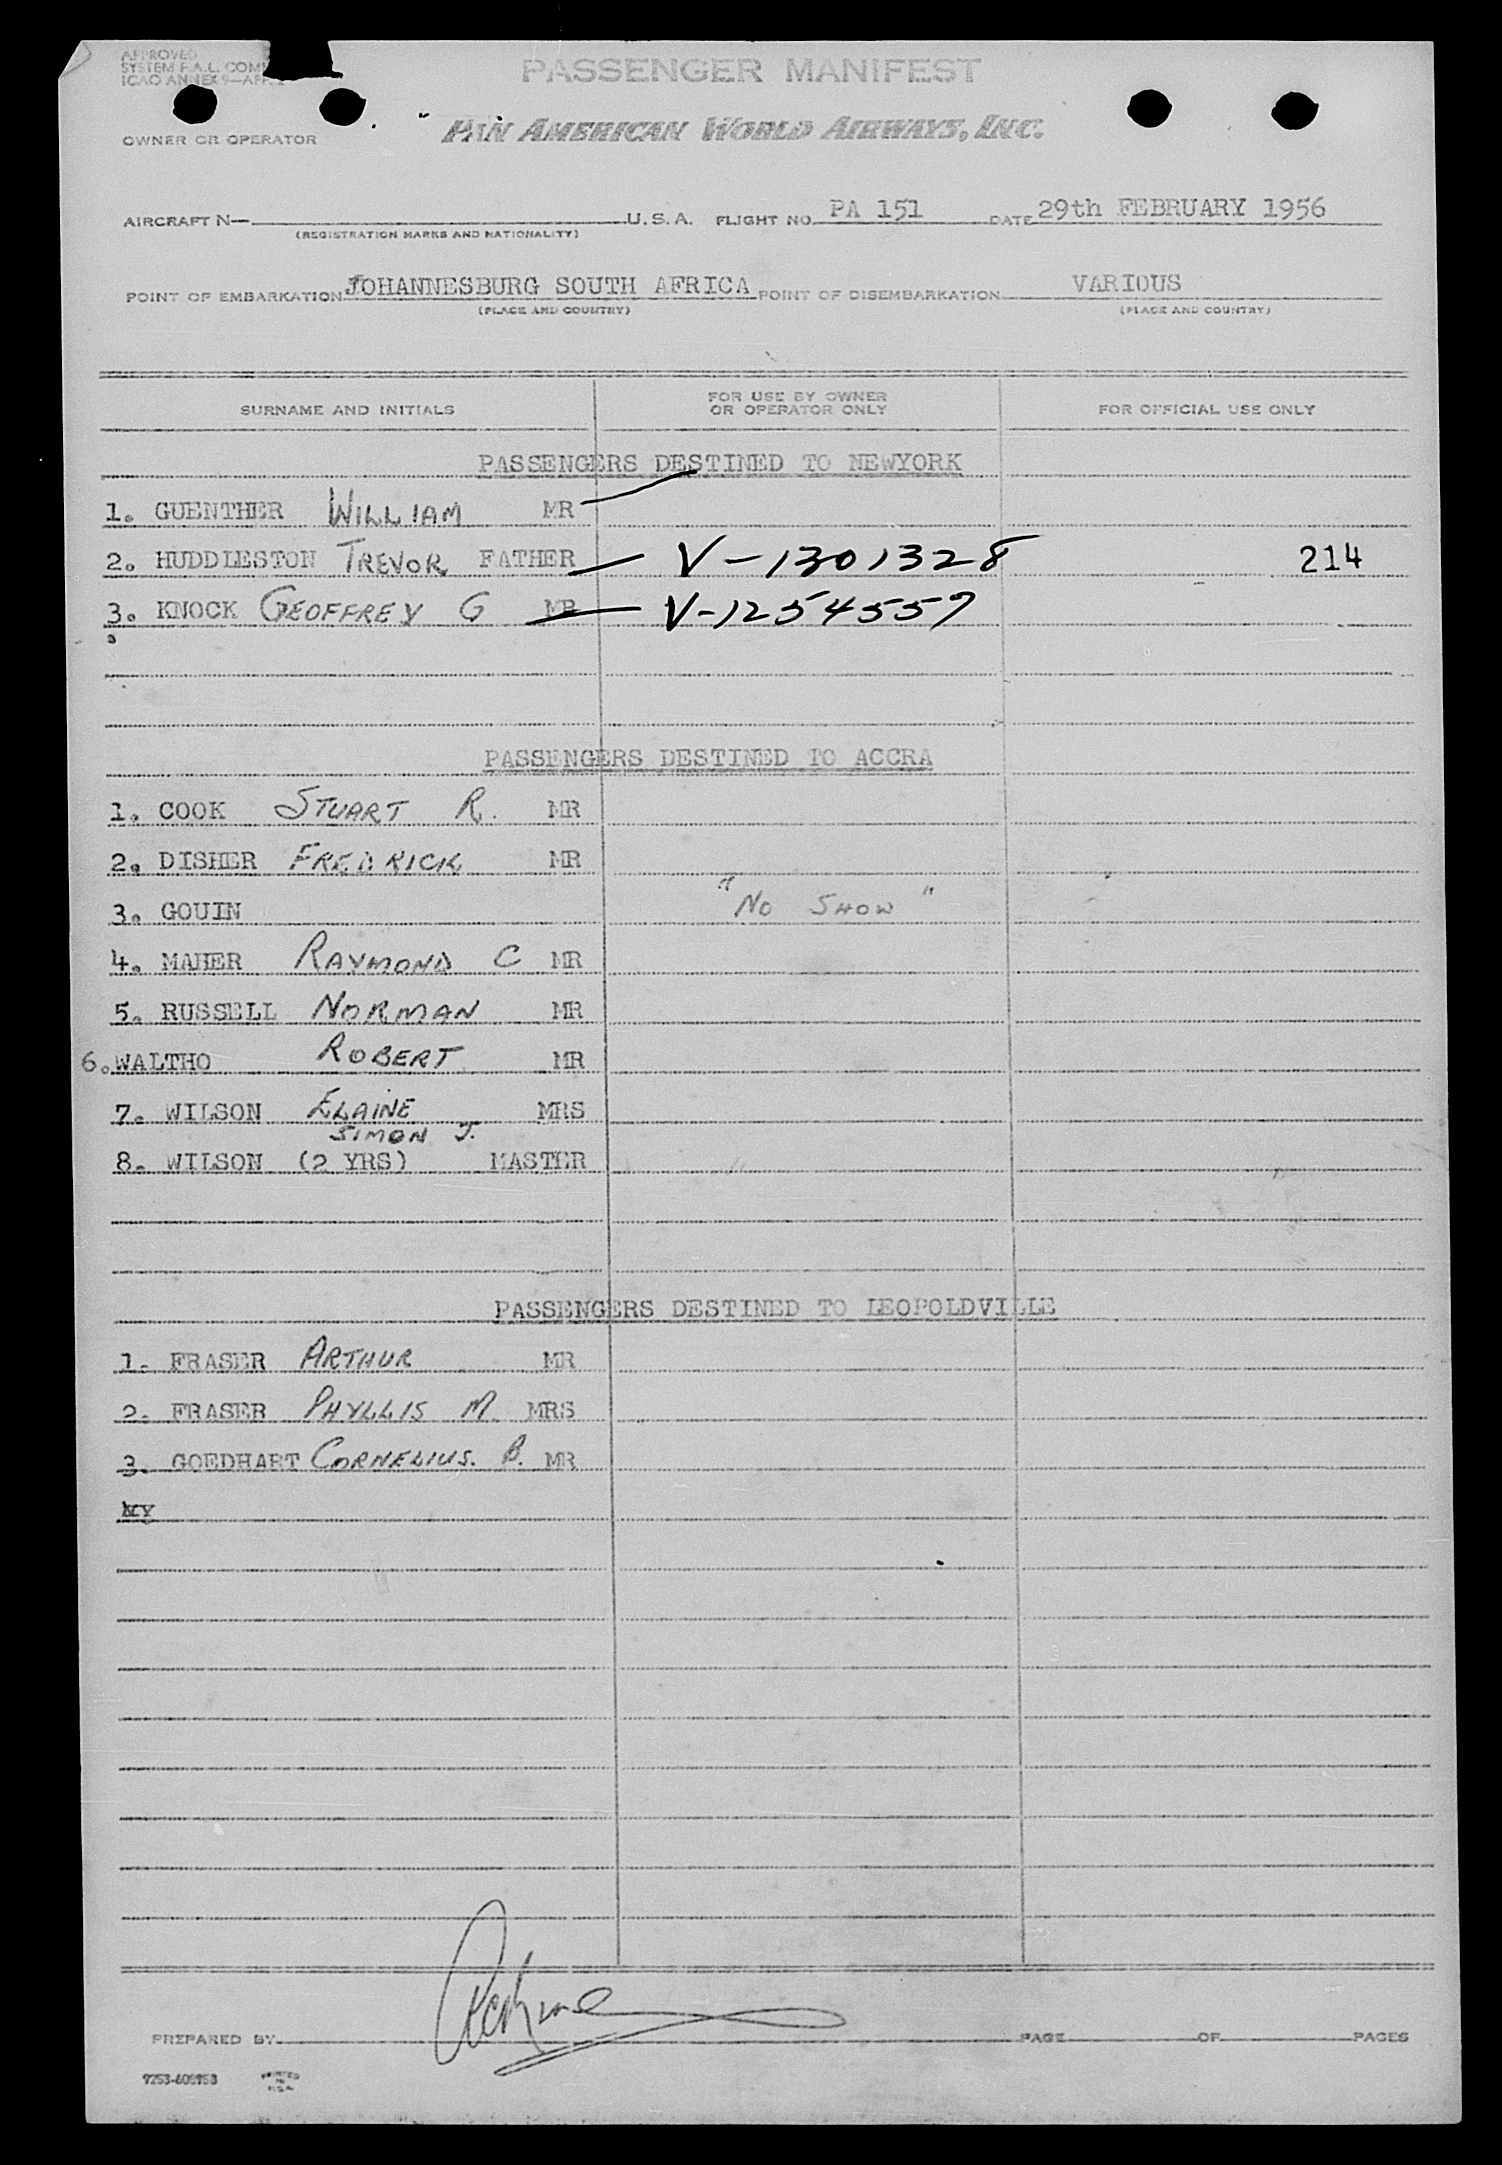 APPROVED
SYSTEM F.A.L. COM
ICAO ANNEX 9—APP. 2
PASSENGER MANIFEST
OWNER OR OPERATOR
PAN AMERICAN WORLD AIRWAYS, INC.
AIRCRAFT N— U. S. A. FLIGHT NO. PA 151 DATE 29th FEBRUARY 1956
(REGISTRATION MARKS AND NATIONALITY)
POINT OF EMBARKATION JOHANNESBURG SOUTH AFRICA POINT OF DISEMBARKATION VARIOUS
(PLACE AND COUNTRY) (PLACE AND COUNTRY)
SURNAME AND INITIALS FOR USE BY OWNER OR OPERATOR ONLY FOR OFFICIAL USE ONLY
PASSENGERS DESTINED TO NEWYORK
1. GUENTHER WILLIAM MR
2. HUDDLESTON TREVOR FATHER — V-1301328 214
3. KNOCK GEOFFREY G MR — V-1254557
PASSENGERS DESTINED TO ACCRA
1. COOK STUART R. MR
2. DISHER FREDRICK MR
3. GOUIN "NO SHOW"
4. MAHER RAYMOND C MR
5. RUSSELL NORMAN MR
6. WALTHO ROBERT MR
7. WILSON ELAINE MRS
SIMON J.
8. WILSON (2 YRS) MASTER
PASSENGERS DESTINED TO LEOPOLDVILLE
1. FRASER ARTHUR MR
2. FRASER PHYLLIS M. MRS
3. GOEDHART CORNELIUS. B. MR
PREPARED BY PAGE OF PAGES
PRINTED IN U.S.A.